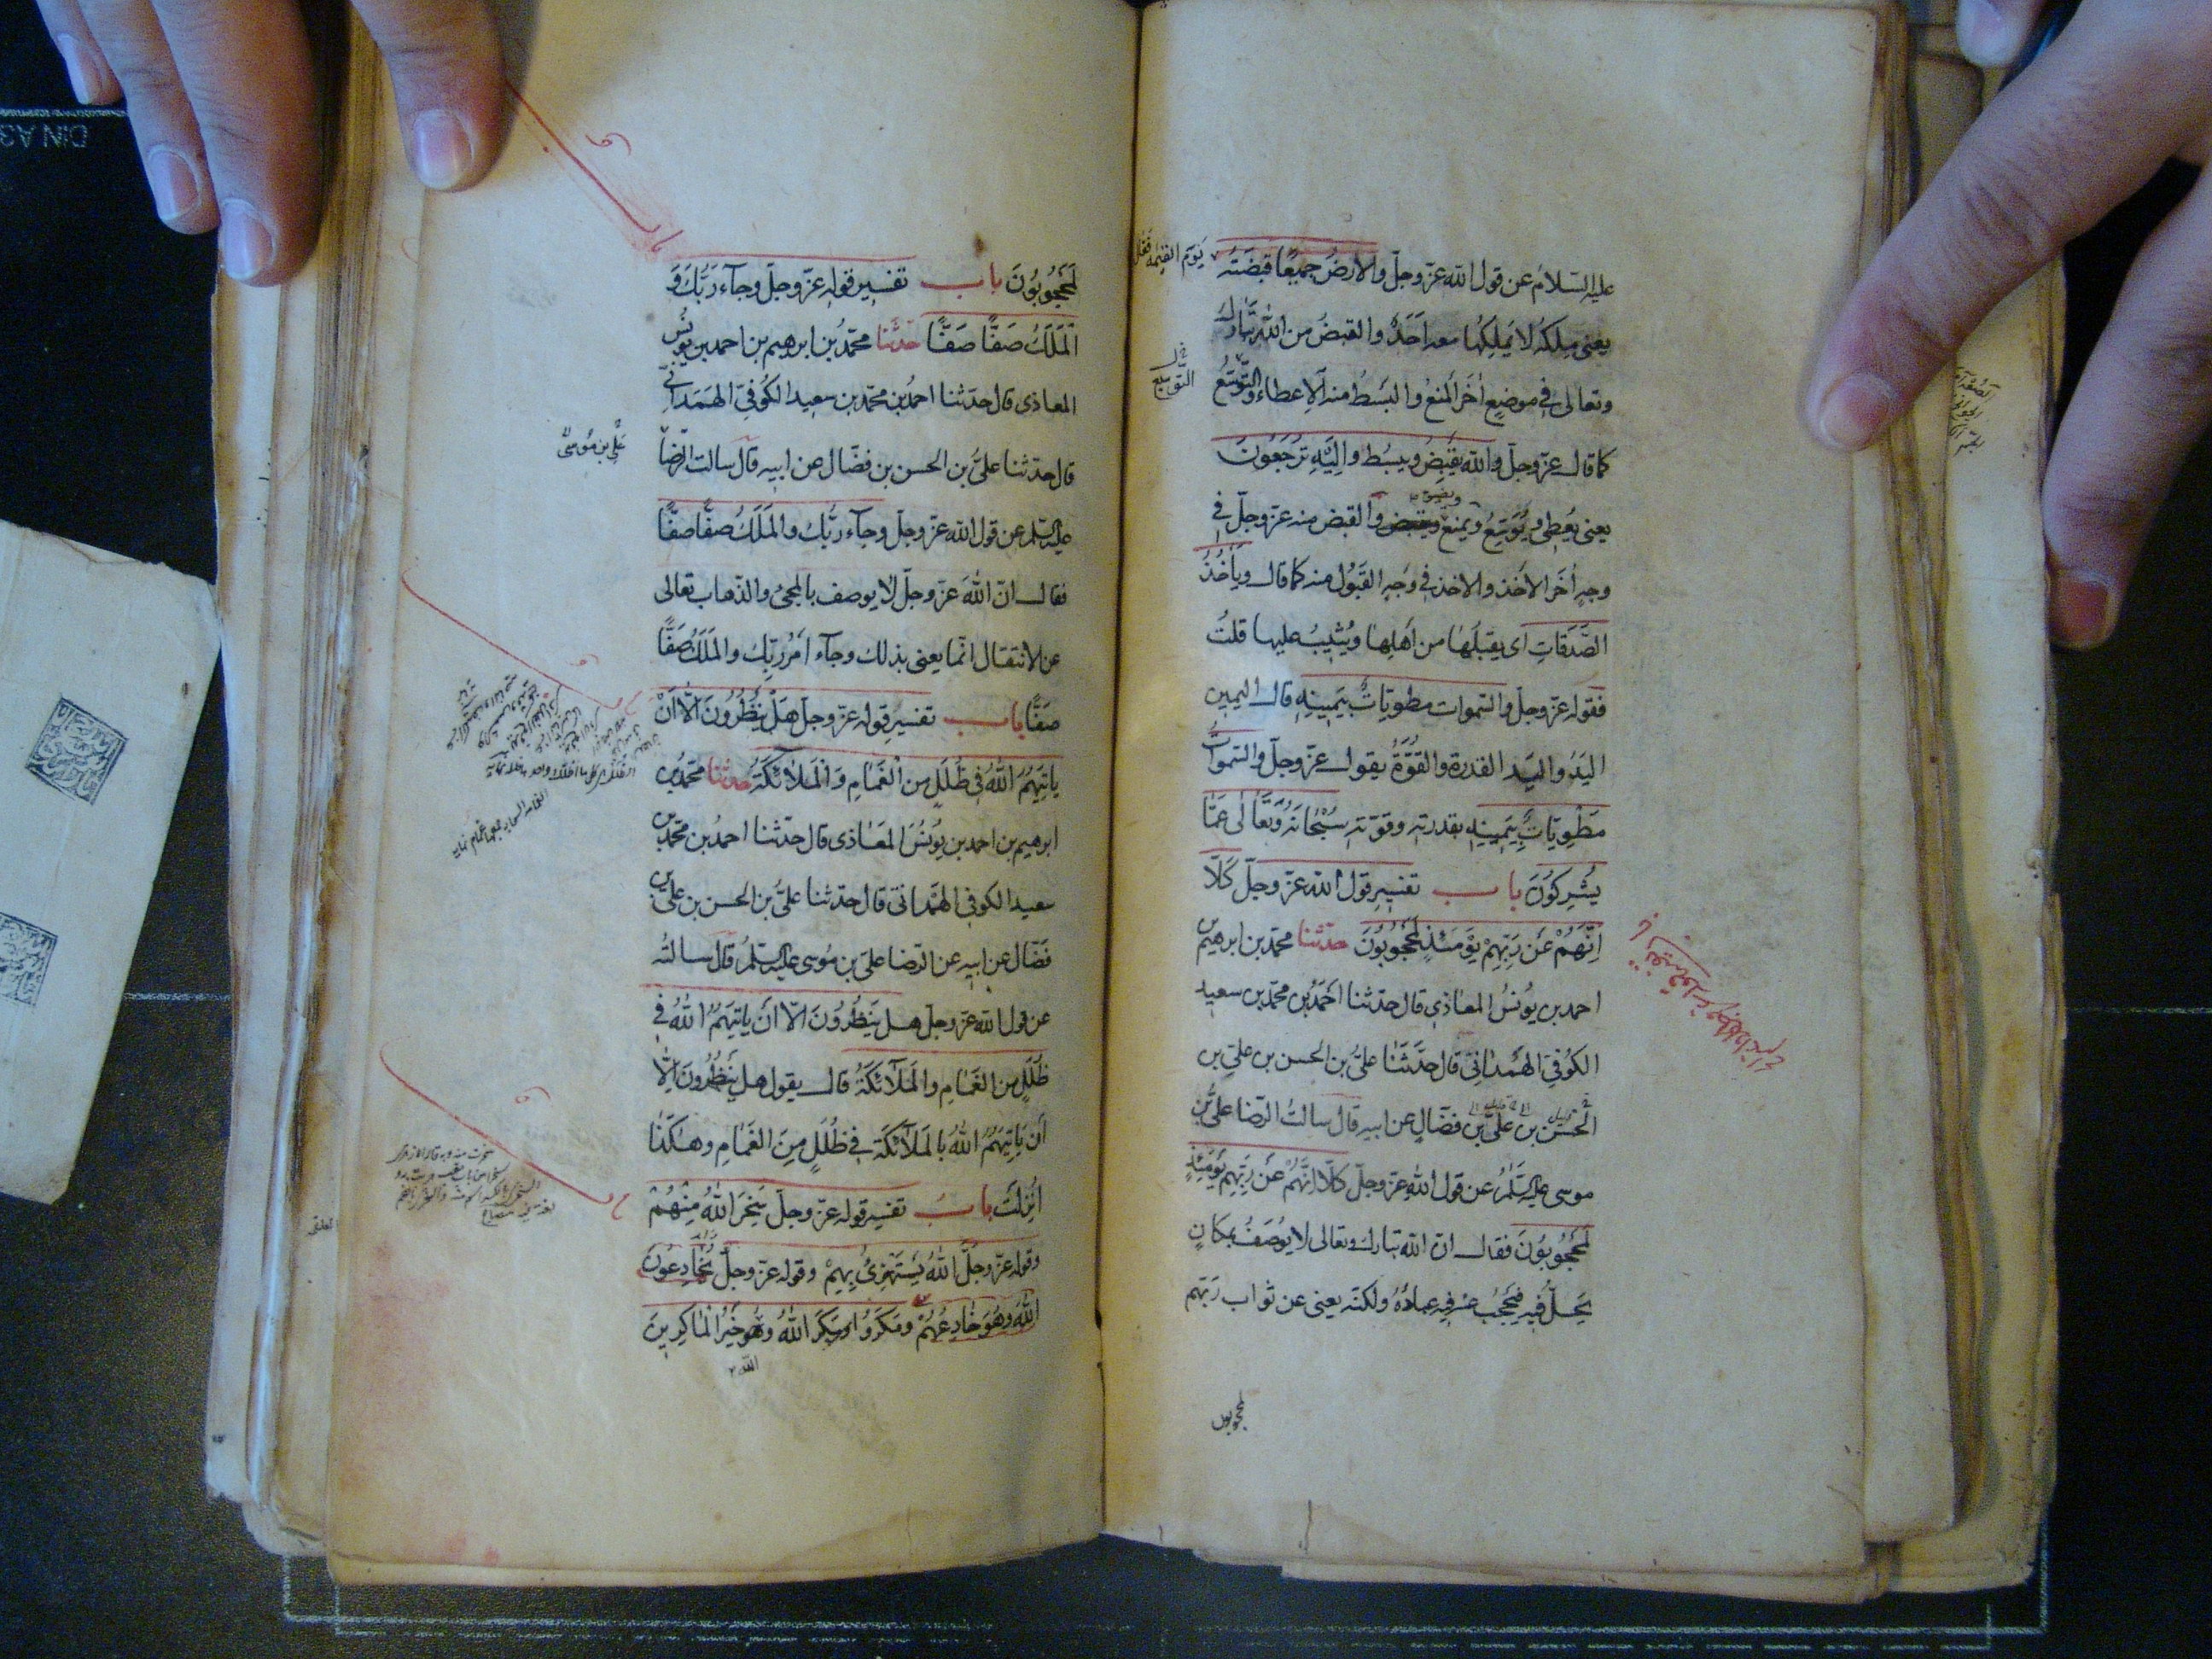 عليه السلام عن قول الله عزّ وجلّ والارض جميعًا قبضته
يوم القيمة فقال
يعنى ملكه لا يملكها معه احد والقبض من الله تبارك
وتعالى في موضع اخر المنع والبسط منه الاعطاء والتوسّع
التوسيع
كما قال عزّ وجلّ والله يقبض ويبسط واليه ترجعون
يعنى يعطى ويوسّع ويمنع ويقبض والقبض منه عزّ وجلّ في
ويضيق
وجه اخر الاخذ والاخذ في وجه القبول منه كما قال وياخذ
الصّدقات اى يقبلها من اهلها ويثيب عليها قلت
فقوله عزّ وجلّ والسّموات مطويّات بيمينه قال اليمين
اليد واليد القدرة والقوّة يقول عزّ وجلّ والسّموات
مطويّات بيمينه بقدرته وقوّته سبحانه وتعالى عمّا
يشركون باب تفسير قول الله عزّ وجلّ كلّا
انّهم عن ربّهم يومئذ لمحجوبون حدّثنا محمّد بن ابرهيم بن
احمد بن يونس المعاذى قال حدّثنا احمد بن محمّد بن سعيد
الكوفىّ الهمدانىّ قال حدّثنا علىّ بن الحسن بن علىّ بن
الحسن بن علىّ بن فضّال عن ابيه قال سالت الرّضا علىّ بن
موسى عليه السّلم عن قول الله عزّ وجلّ كلّا انّهم عن ربّهم يومئذ
لمحجوبون فقال انّ الله تبارك وتعالى لا يوصف بمكان
يحلّ فيه فيحجب عنه فيه عباده ولكنّه يعنى عن ثواب ربّهم
لمحجوبون
لمحجوبون باب تفسير قوله عزّ وجلّ وجآء ربّك و
الملك صفّا صفّا حدّثنا محمّد بن ابرهيم بن احمد بن يونس
المعاذى قال حدّثنا احمد بن محمّد بن سعيد الكوفىّ الهمدانىّ
قال حدّثنا علىّ بن الحسن بن فضّال عن ابيه قال سالت الرّضا
علىّ بن موسى
عليه السّلم عن قول الله عزّ وجلّ وجآء ربّك والملك صفّا صفّا
فقال انّ الله عزّ وجلّ لا يوصف بالمجئ والذّهاب تعالى
عن الانتقال انّما يعنى بذلك وجآء امر ربّك والملك صفّا
صفّا باب تفسير قوله عزّ وجلّ هل ينظرون الّا ان
ياتيهم الله في ظلل من الغمام والملائكة حدّثنا محمّد بن
ابرهيم بن احمد بن يونس المعاذى قال حدّثنا احمد بن محمّد بن
سعيد الكوفى الهمدانىّ قال حدّثنا علىّ بن الحسن بن علىّ بن
فضّال عن ابيه عن الرّضا علىّ بن موسى عليه السّلم قال سالته
عن قول الله عزّ وجلّ هل ينظرون الّا ان ياتيهم الله في
ظلل من الغمام والملائكة قال يقول هل ينظرون الّا
ان ياتيهم الله بالملائكة في ظلل من الغمام وهكذا
انزلت باب تفسير قوله عزّ وجلّ سخر الله منهم
وقوله عزّ وجلّ الله يستهزئ بهم وقوله عزّ وجلّ يخادعون
الله وهو خادعهم ومكروا ومكر الله وهو خير الماكرين
الله